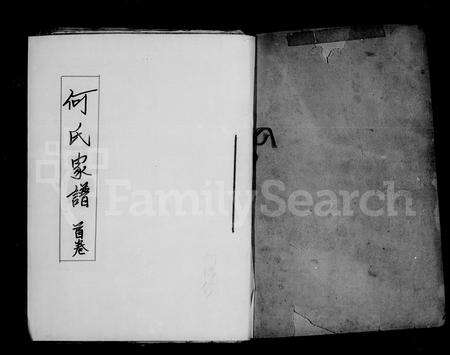 何氏家譜 首卷
FamilySearch